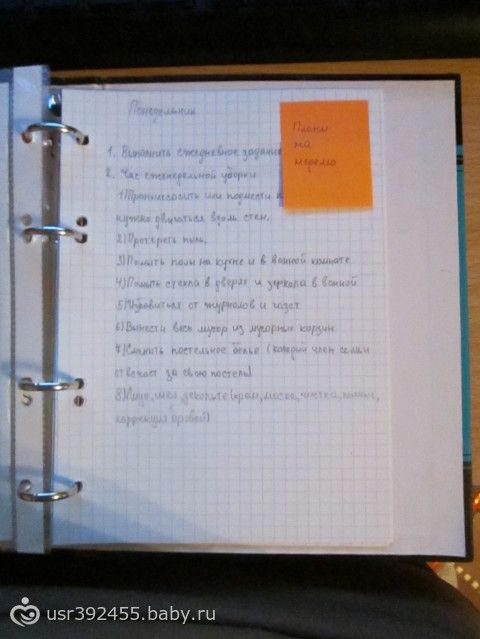 Понедельник
Планы
на
неделю
1. Выполнить ежедневное задание
2. Час еженедельной уборки
1) Пропылесосить или подмести
нужно двигаться вдоль стен.
2) Протереть пыль.
3) Помыть полы на кухне и в ванной комнате
4) Помыть стекла в дверях и зеркала в ванной
5) Избавиться от журналов и газет
6) Вынести весь мусор из мусорных корзин
7) Сменить постельное белье (каждый член семьи
отвечает за свою постель)
8) Лицо, шея, декольте (крем, маска, чистка, пилинг,
коррекция бровей)
usr392455.baby.ru